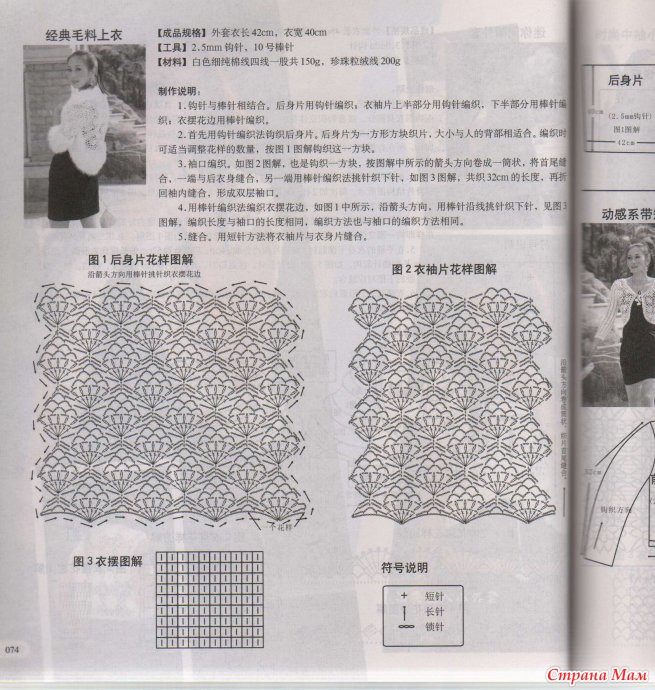 经典毛料上衣
【成品规格】外套衣长42cm，衣宽40cm
【工具】2.5mm钩针，10号棒针
【材料】白色细纯棉线四线一股共150g，珍珠粒绒线200g
制作说明：
1.钩针与棒针相结合。后身片用钩针编织；衣袖片上半部分用钩针编织，下半部分用棒针编
织；衣摆花边用棒针编织。
2.首先用钩针编织法钩织后身片。后身片为一方形方块织片，大小与人的背部相适合。编织时
可适当调整花样的数量，按图1图解钩织这一方块。
3.袖口编织。如图2图解，也是钩织一方块，按图解中所示的箭头方向卷成一筒状，将首尾缝
合，一端与后衣身缝合，另一端用棒针编织法挑针织下针，如图3图解，共织32cm的长度，再折
回袖内缝合，形成双层袖口。
4.用棒针编织法编织衣摆花边，如图1中所示，沿箭头方向，用棒针沿线挑针织下针，见图3
图解，编织长度与袖口的长度相同，编织方法也与袖口的编织方法相同。
5.缝合。用短针方法将衣袖片与衣身片缝合。
图1后身片花样图解
沿箭头方向用棒针挑针织衣摆花边
一个花样
图2衣袖片花样图解
沿箭头方向卷成筒状，织片首尾缝合。
图3衣摆图解
符号说明
+ 短针
长针
锁针
074
后身片
(2.5mm钩针)
图1图解
42cm
动感系带
钩织方向
Страна Мам